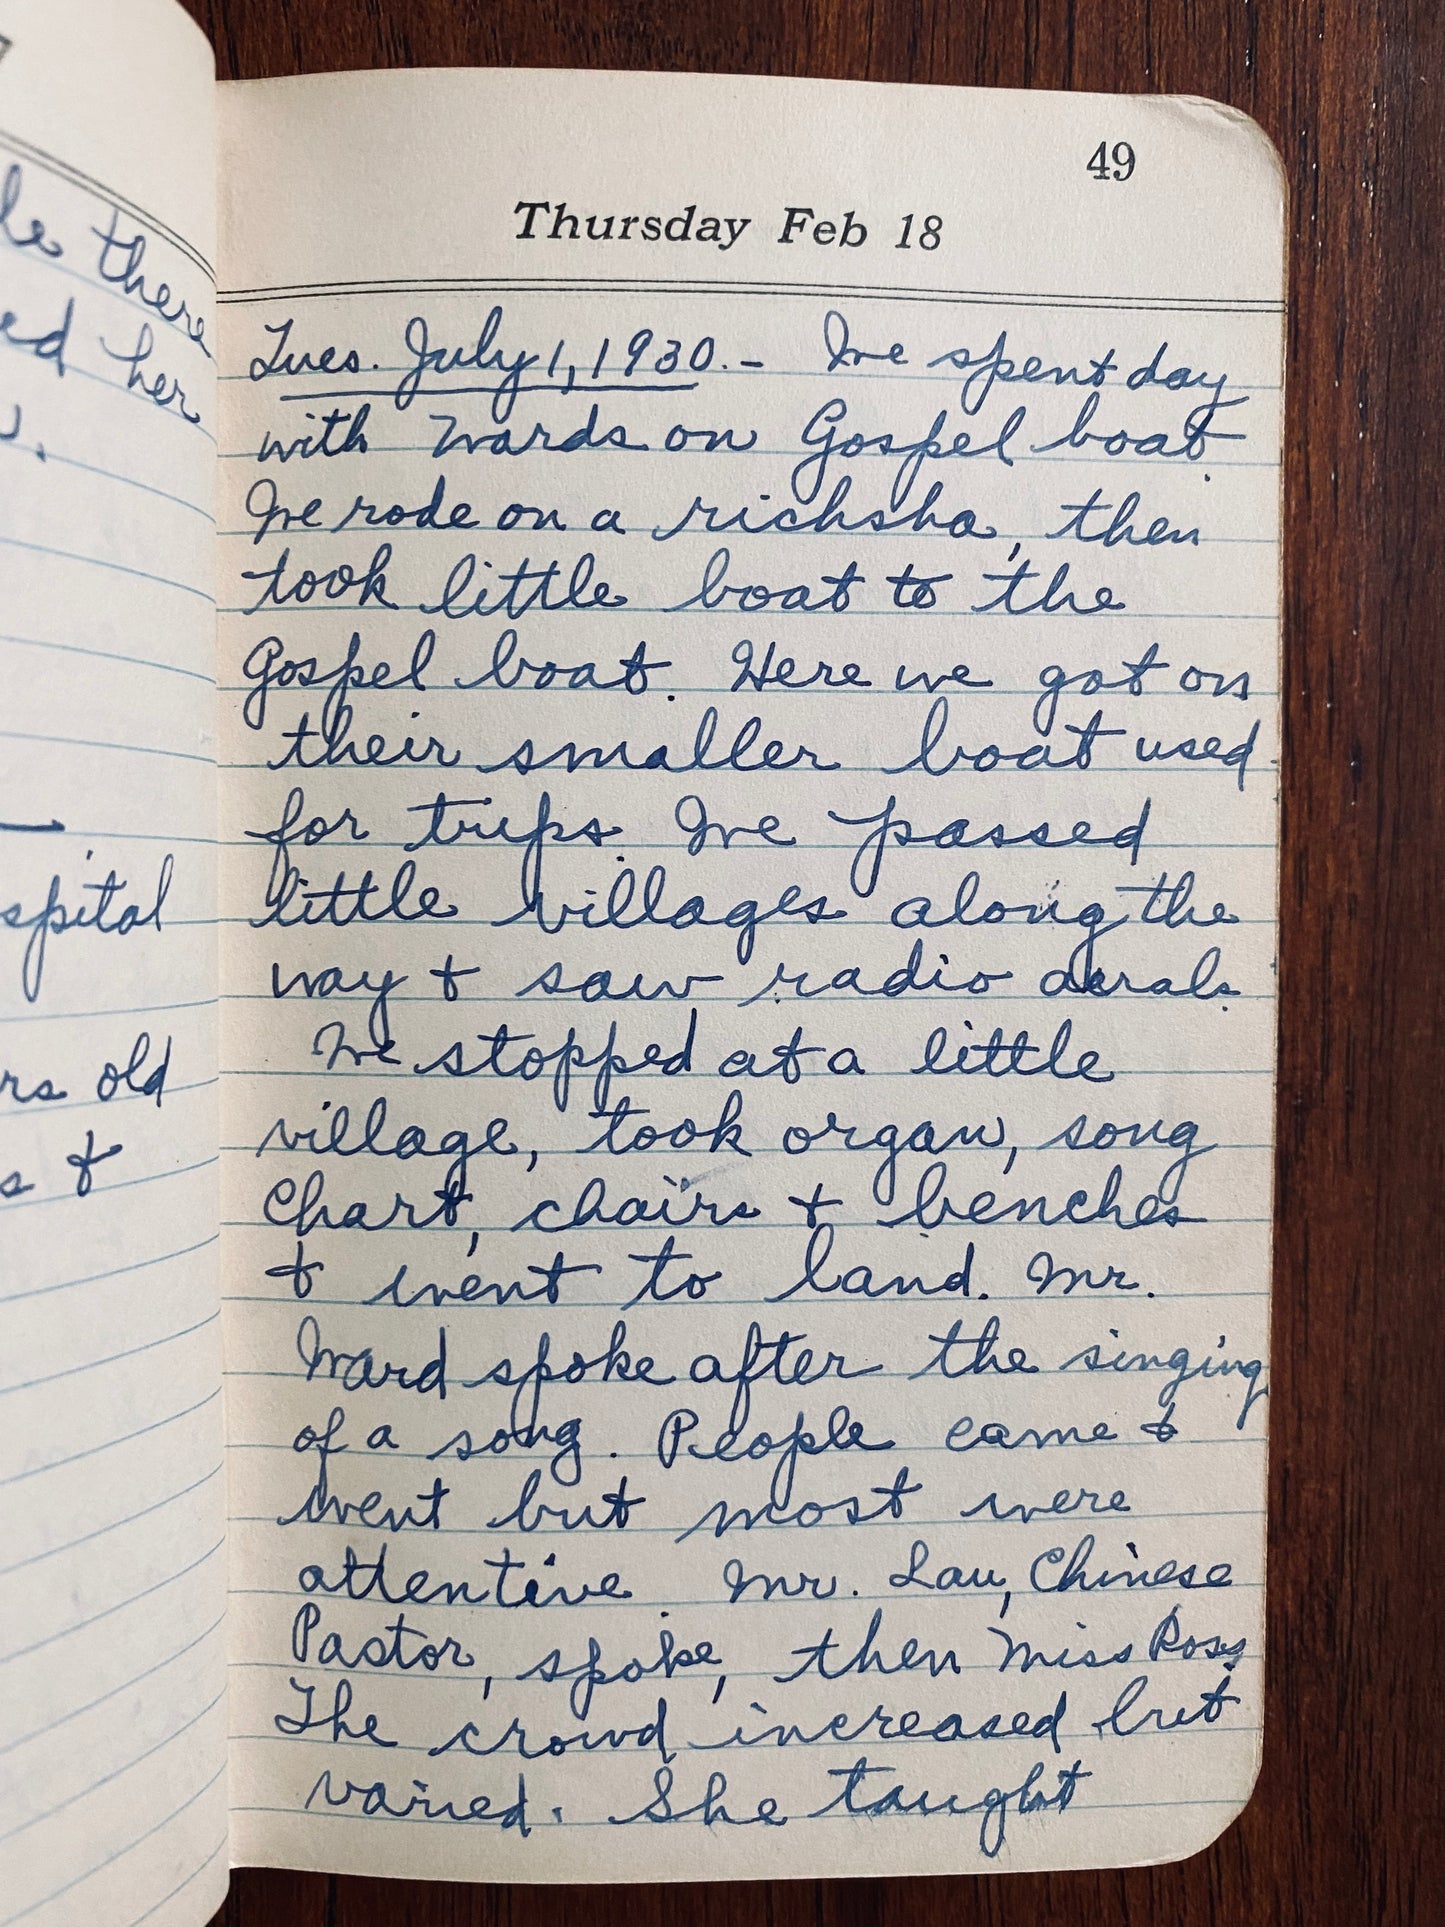 le there
ed her
spital
rs old
s +
49
Thursday Feb 18
Tues. July 1, 1930. - We spent day
with Wards on Gospel boat.
We rode on a richsha, then
took little boat to the
Gospel boat. Here we got on
their smaller boat used
for trips. We passed
little villages along the
way + saw radio aerals.
We stopped at a little
village, took organ, song
Chart, chairs + benches
+ went to land. Mr.
Ward spoke after the singing
of a song. People came +
went but most were
attentive. Mr. Lau, Chinese
Pastor, spoke, then Miss Ross
The crowd increased but
varied. She taught